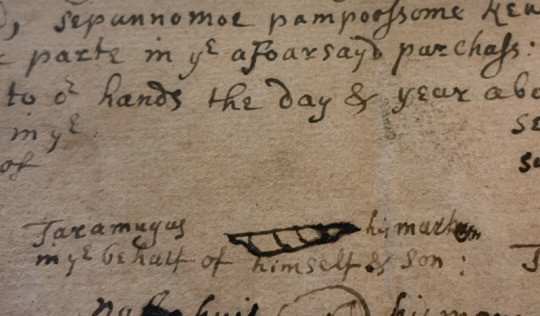 , sepunnomoe pampoossome
parte in yᵉ afoarsayd purchass:
to oʳ hands the day & year abo
in yᵉ
of
Taramugus his marke
in yᵉ behalf of himself & son :